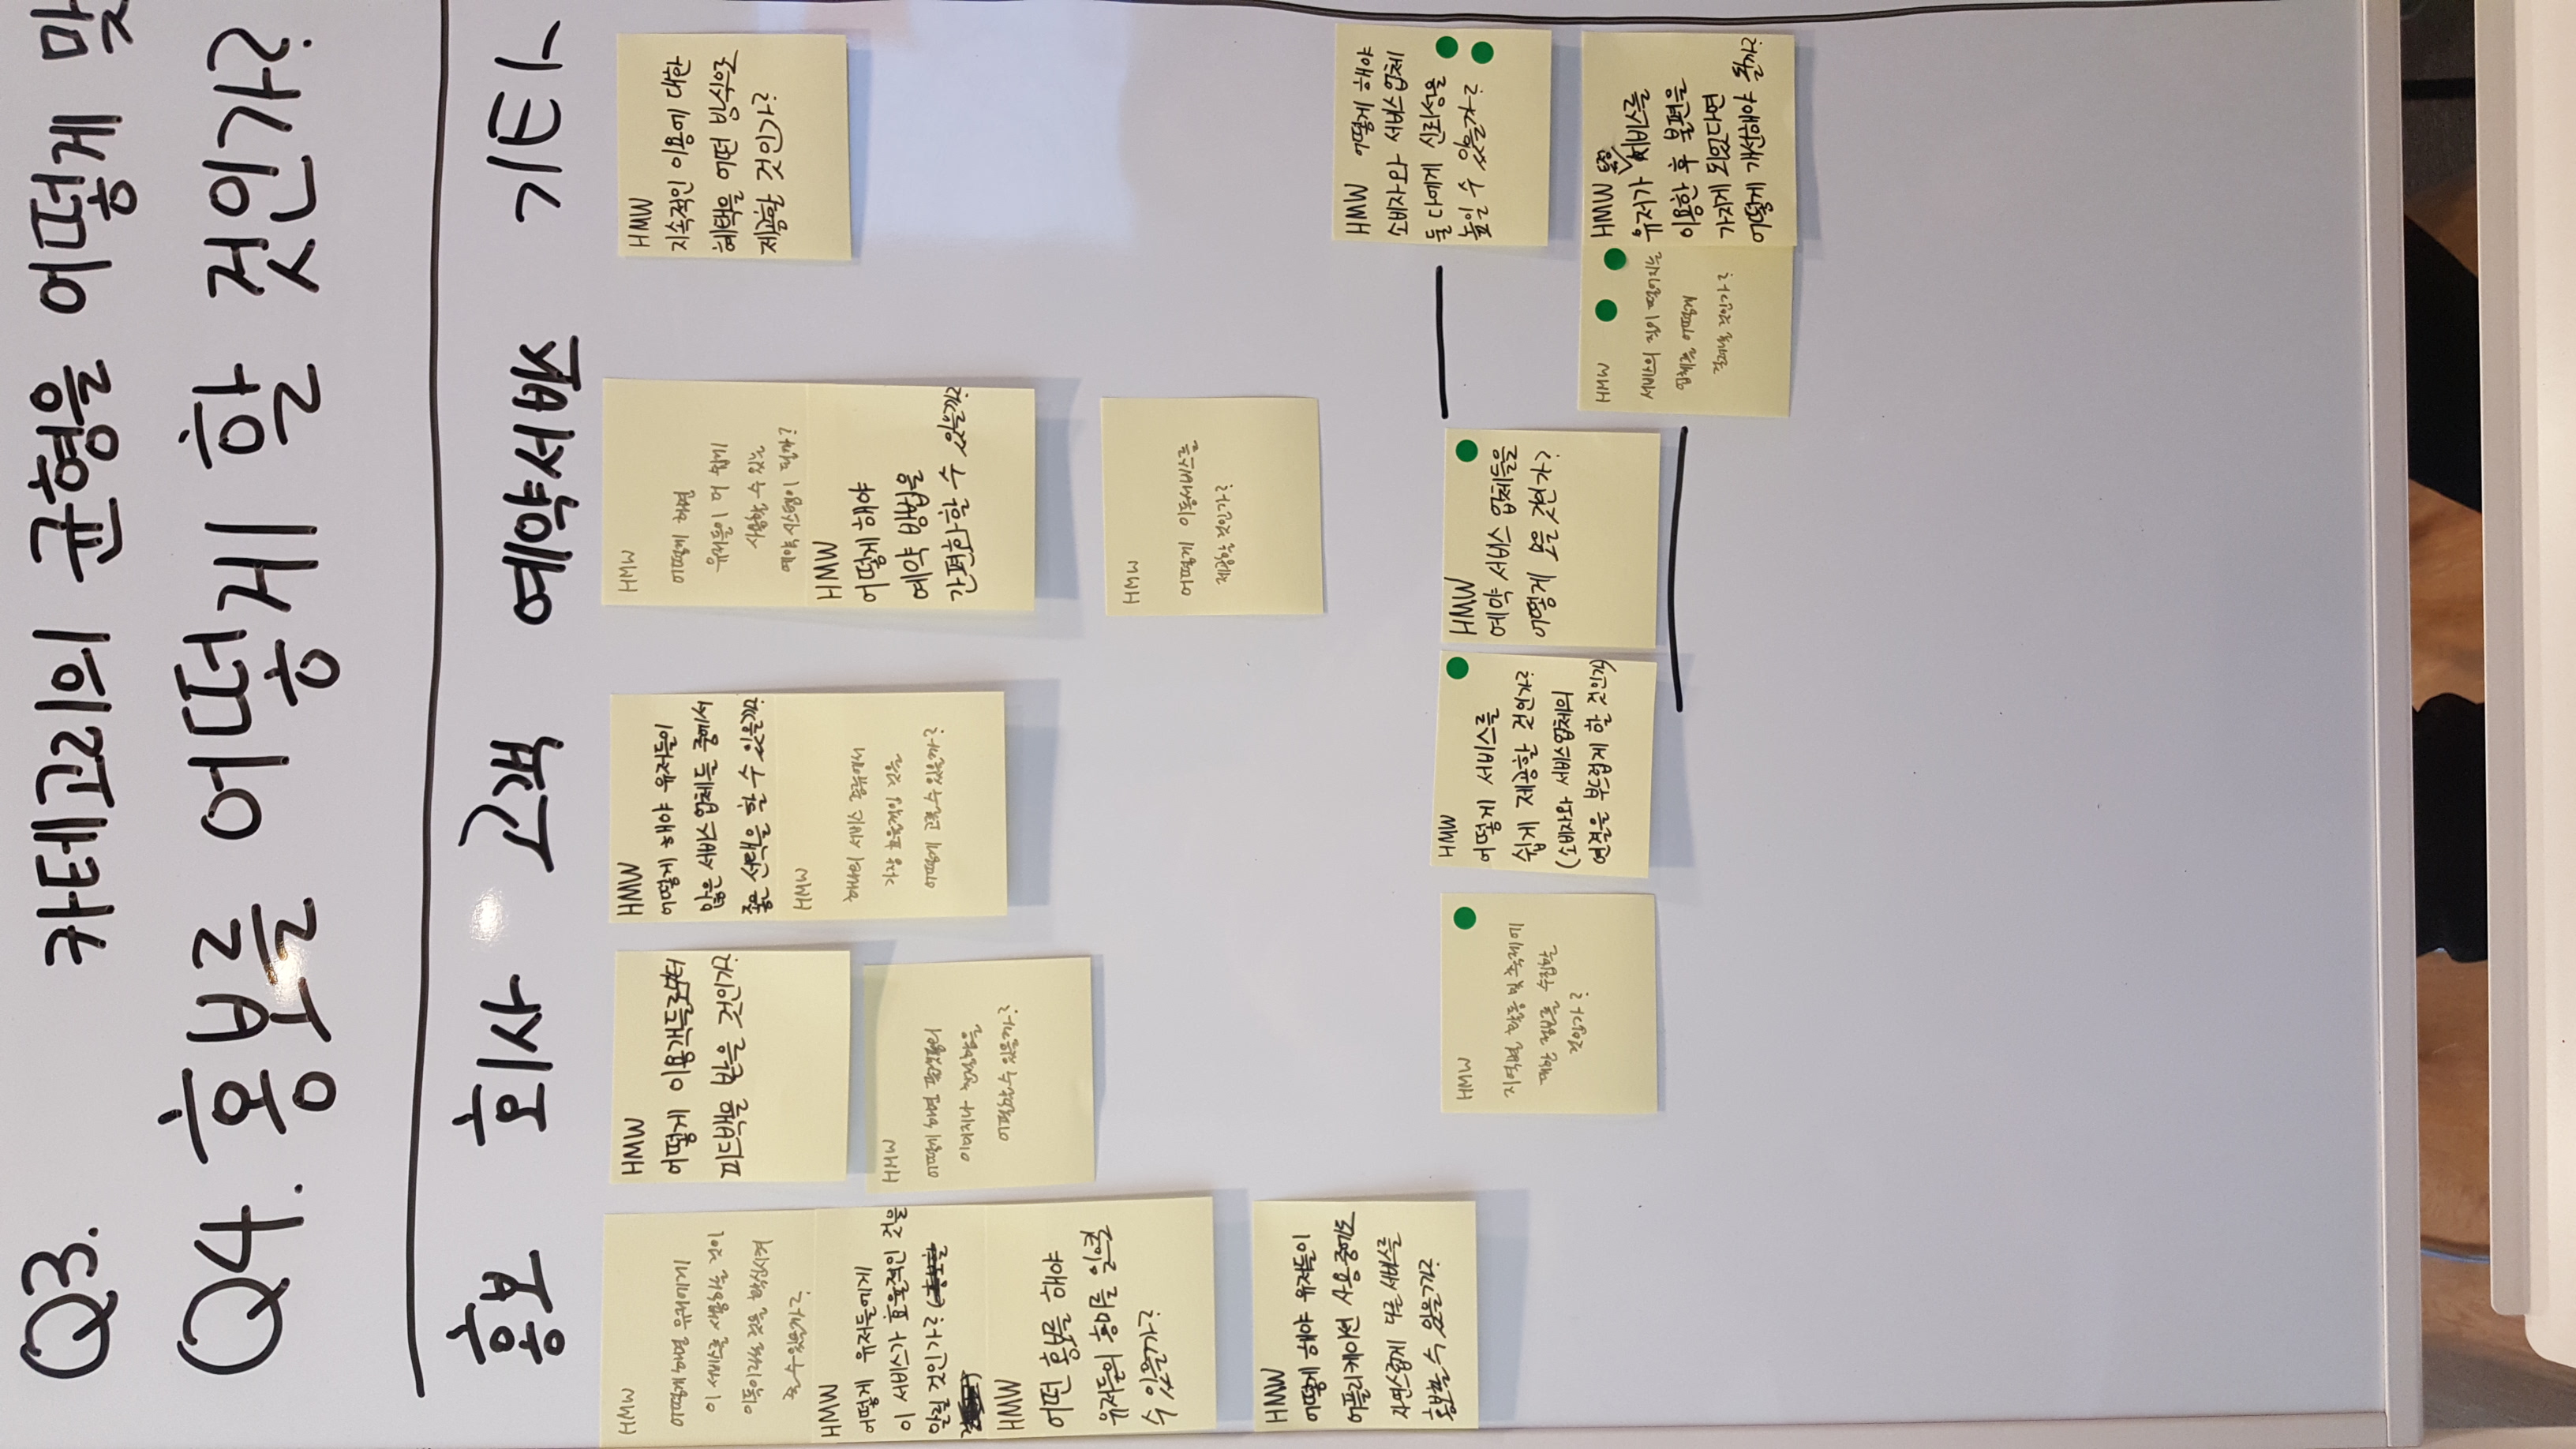 Q3. 카테고리의 균형을 어떻게 맞
Q4. 홍보를 어떻게 할 것인가?
홍보
회사
고객
예약서비스
기타
HMW
어떻게 하면 유저에게
이 서비스를 사용하는 것이
이득이라는 것을 확신시켜
줄 수 있을까?
HMW
어떻게 유저들에게
이 서비스가 효율적인 것을
알릴 것인가?
HMW
어떤 홍보를 해야
유저들의 흥미를 일으킬
수 있을까?
HMW
어떻게 해야 유저들이
어플리케이션 사용중에도
자연스럽게 다른 서비스를
홍보할 수 있을까?
HMW
어떻게 이용객들로부터
피드백을 받을 것인가?
HMW
어떻게 하면
이미지나 친절함을
어필할 수 있을까?
HMW
어떻게 해야 유저들이
많은 서비스 업체들 중에서
좋은 선택을 할 수 있을까?
HMW
하나의 서비스 종류에서
가장 효율적인 것을
어떻게 고를 수 있을까?
HMW
어떻게 하면
유저들이 더 쉽게
사용할 수 있는
예약 시스템이 될까?
HMW
어떻게 해야
예약 방법을
간편화할 수 있을까?
HMW
어떻게 이동서비스를
제공할 것인가?
HMW
지속적인 이용에 대한
혜택을 어떤 방식으로
제공할 것인가?
HMW
지역별 활동 및 축제에
대한 정보를 수집할
것인가?
HMW
어떻게 서비스를
쉽게 제공할 것인가?
(소비자와 서비스업체의
연결을 부드럽게 할 것인가)
HMW
예약 서비스 업체들을
어떻게 모을 것인가?
HMW 어떻게 해야
소비자와 서비스 업체
둘 다에게 신뢰성을
높일 수 있을까?
HMW
서비스의 질이 떨어지는
업체를 어떻게
걸러낼 것인가?
HMW 특정
유저가 서비스를
이용한 후 불편을
가지게 되었다면
어떻게 개선해야 될까?